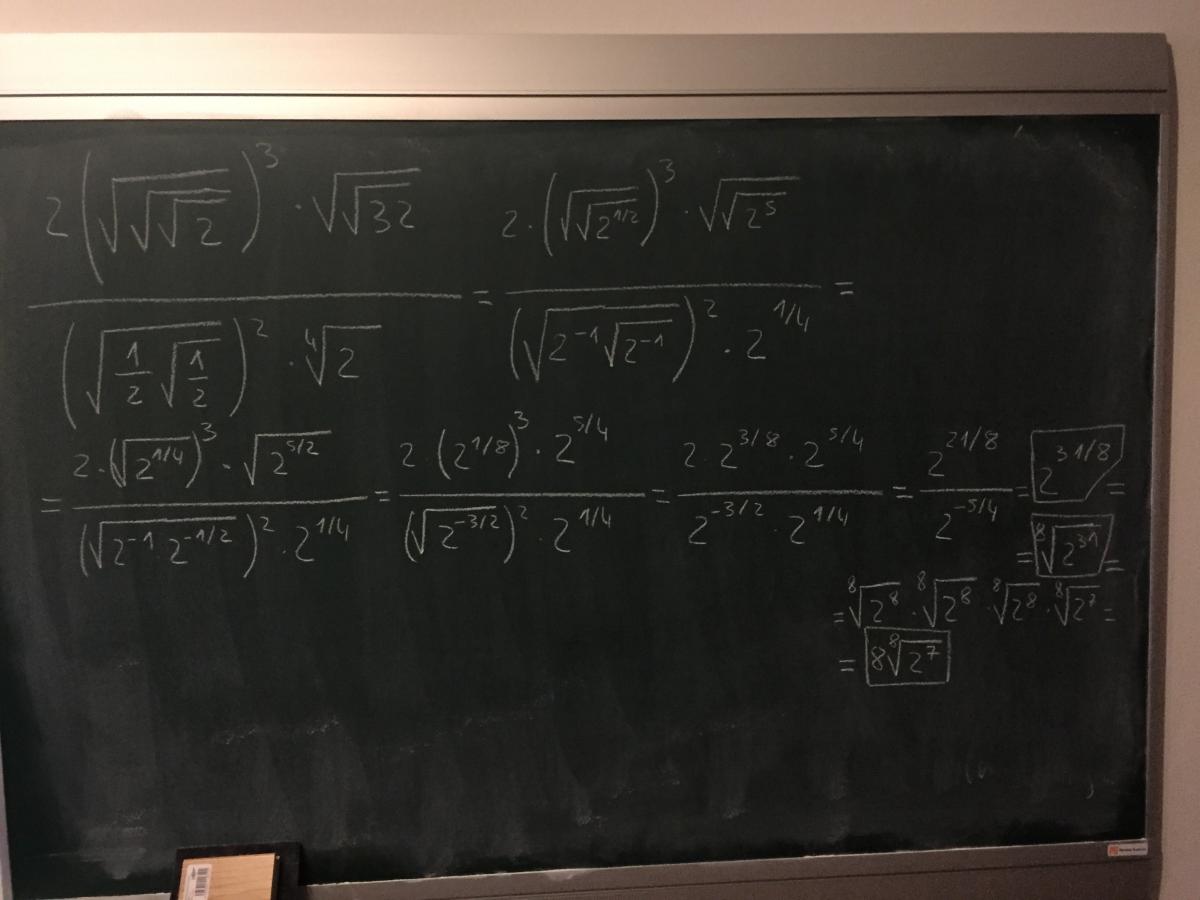 2(√√√2)³ · √√32 / (√(1/2 √(1/2)))² · ⁴√2 = 2·(√√2^1/2)³ · √√2⁵ / (√(2⁻¹√2⁻¹))² · 2^1/4 =
= 2·(√2^1/4)³ · √2^5/2 / (√(2⁻¹·2^-1/2))² · 2^1/4 = 2·(2^1/8)³ · 2^5/4 / (√2^-3/2)² · 2^1/4 = 2·2^3/8 · 2^5/4 / 2^-3/2 · 2^1/4 = 2^21/8 / 2^-5/4 = 2^31/8 =
= ⁸√2³¹ =
= ⁸√2⁸ · ⁸√2⁸ · ⁸√2⁸ · ⁸√2⁷ =
= 8⁸√2⁷